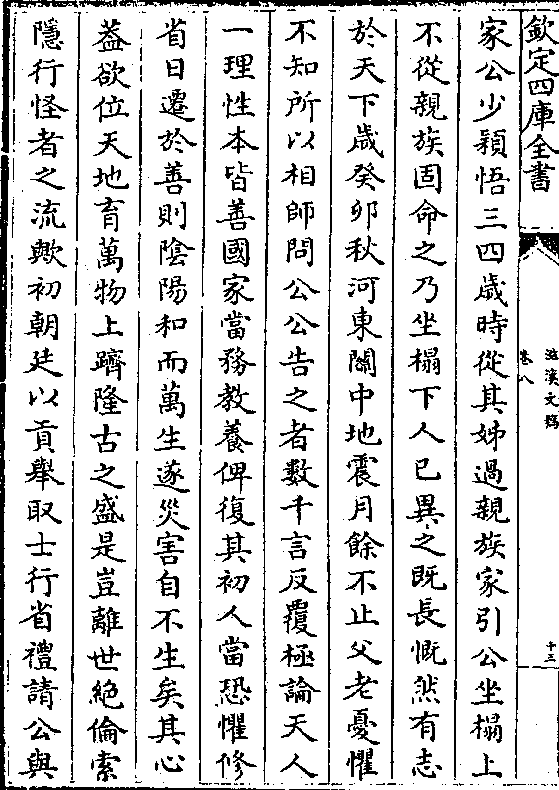 欽定四庫全書
滋溪文稿
卷八
十三
家公少穎悟三四歲時從其姊過親族家引公坐榻上
不從親族固命之乃坐榻下人已異之既長慨然有志
於天下歲癸卯秋河東關中地震月餘不止父老憂懼
不知所以相師問公公告之者數千言反覆極論天人
一理性本皆善國家當務教養俾復其初人當恐懼修
省日遷於善則陰陽和而萬生遂災害自不生矣其心
葢欲位天地育萬物上躋隆古之盛是豈離世絶倫索
隱行怪者之流歟初朝廷以貢舉取士行省禮請公與